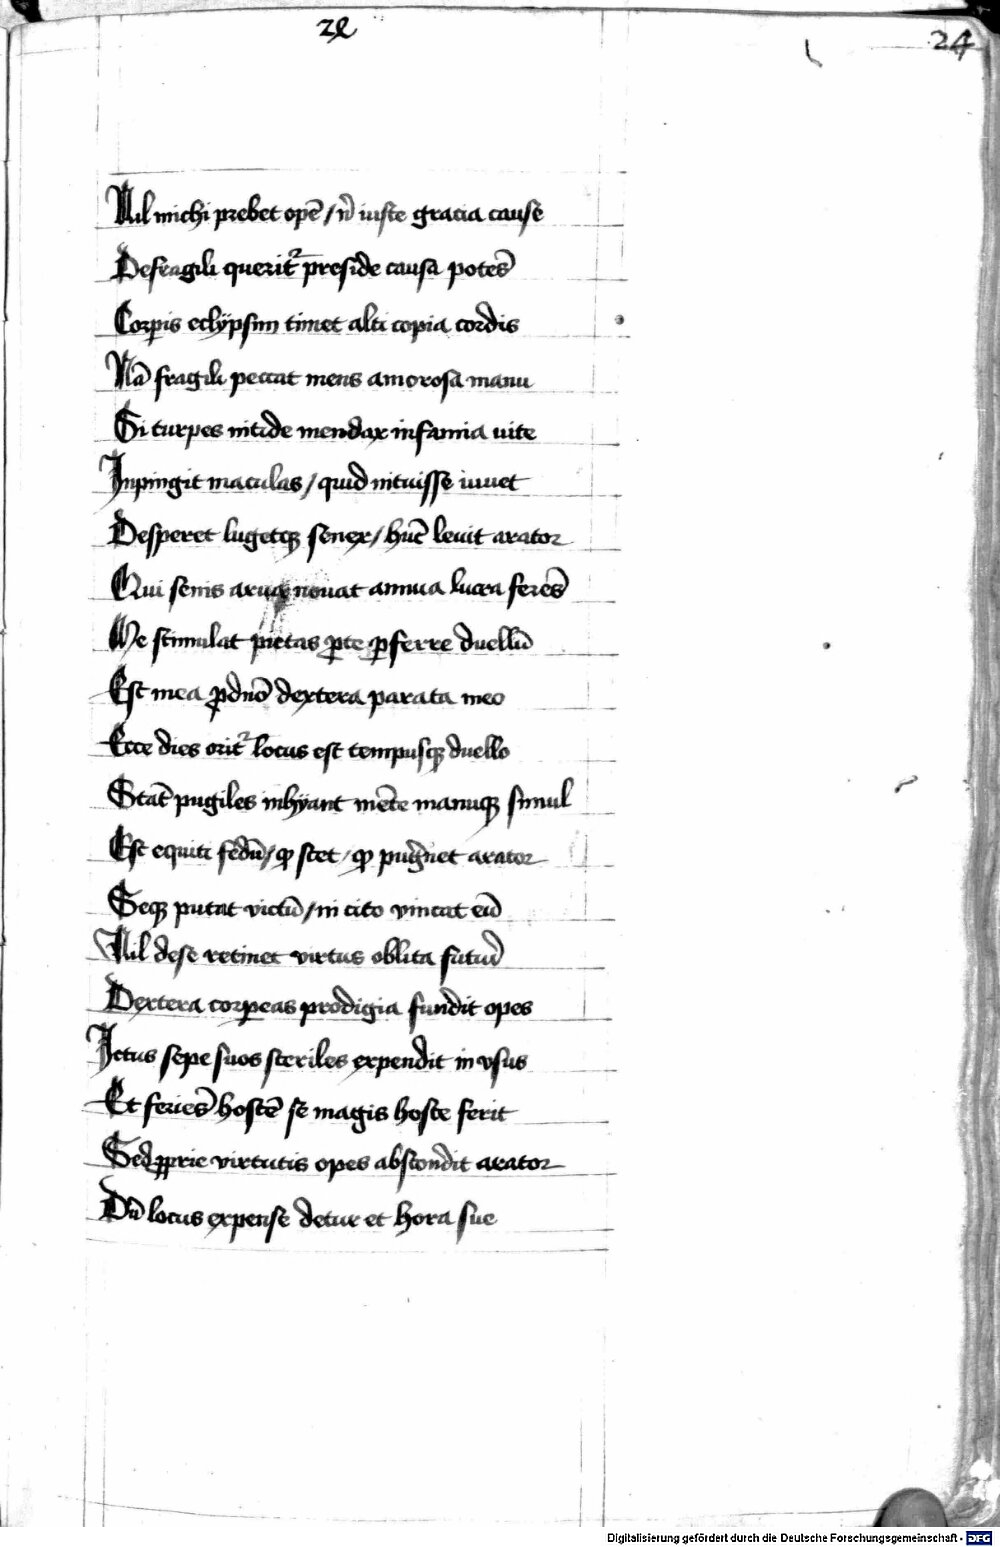 24
Nil michi prebet opē / n̄ iuste gracia cause
De fragili querit᷑ p̄reside causa potēs
Corꝑis eclÿpsim timet alti copia cordis
Nā fragili peccat mens amorosa manu
Si turpes nitide mendax infamia uite
Inpingit maculas / quid nituisse iuuet
Desperet lugetqꝫ senex / hūc leuit arator
Qui senis arua nouat annua lucra ferēs
Me stimulat pietas ꝓ te ꝑferre duellū
Est mea ꝓ dn̄o dextera parata meo
Ecce dies orit᷑ locus est tempusqꝫ duello
Stāt pugiles inhÿant mēte manuqꝫ simul
Est equiti fedū / ꝙ stet / ꝙ pugnet arator
Seqꝫ putat victū / ni cito vincat eū
Nil de se retinet virtus oblita futuri
Dextera corꝑeas prodigia fundit opes
Ictus sepe suos steriles expendit in vsus
Et feriēs hostē se magis hoste ferit
Sed ꝓprie virtutis opes abscondit arator
Dū locus expense detur et hora sue
Digitalisierung gefördert durch die Deutsche Forschungsgemeinschaft - DFG